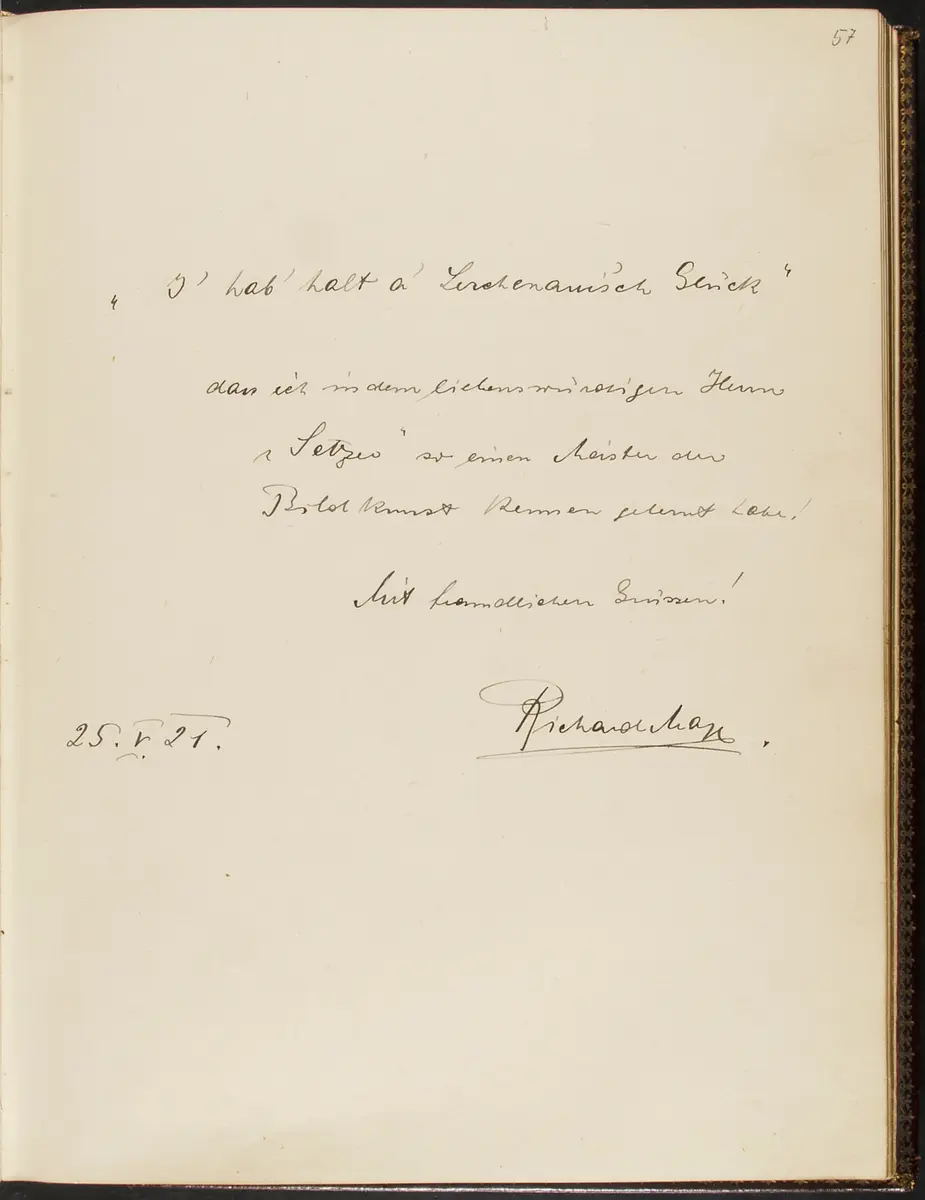 57
„ I' hab' halt a' Lerchenauisch Glück "
dass ich in dem liebenswürdigen Herrn
„Setzer" so einen Meister der
Bildkunst kennen gelernt habe!
Mit freundlichen Grüssen!
Richard Mayr.
25. V. 21.